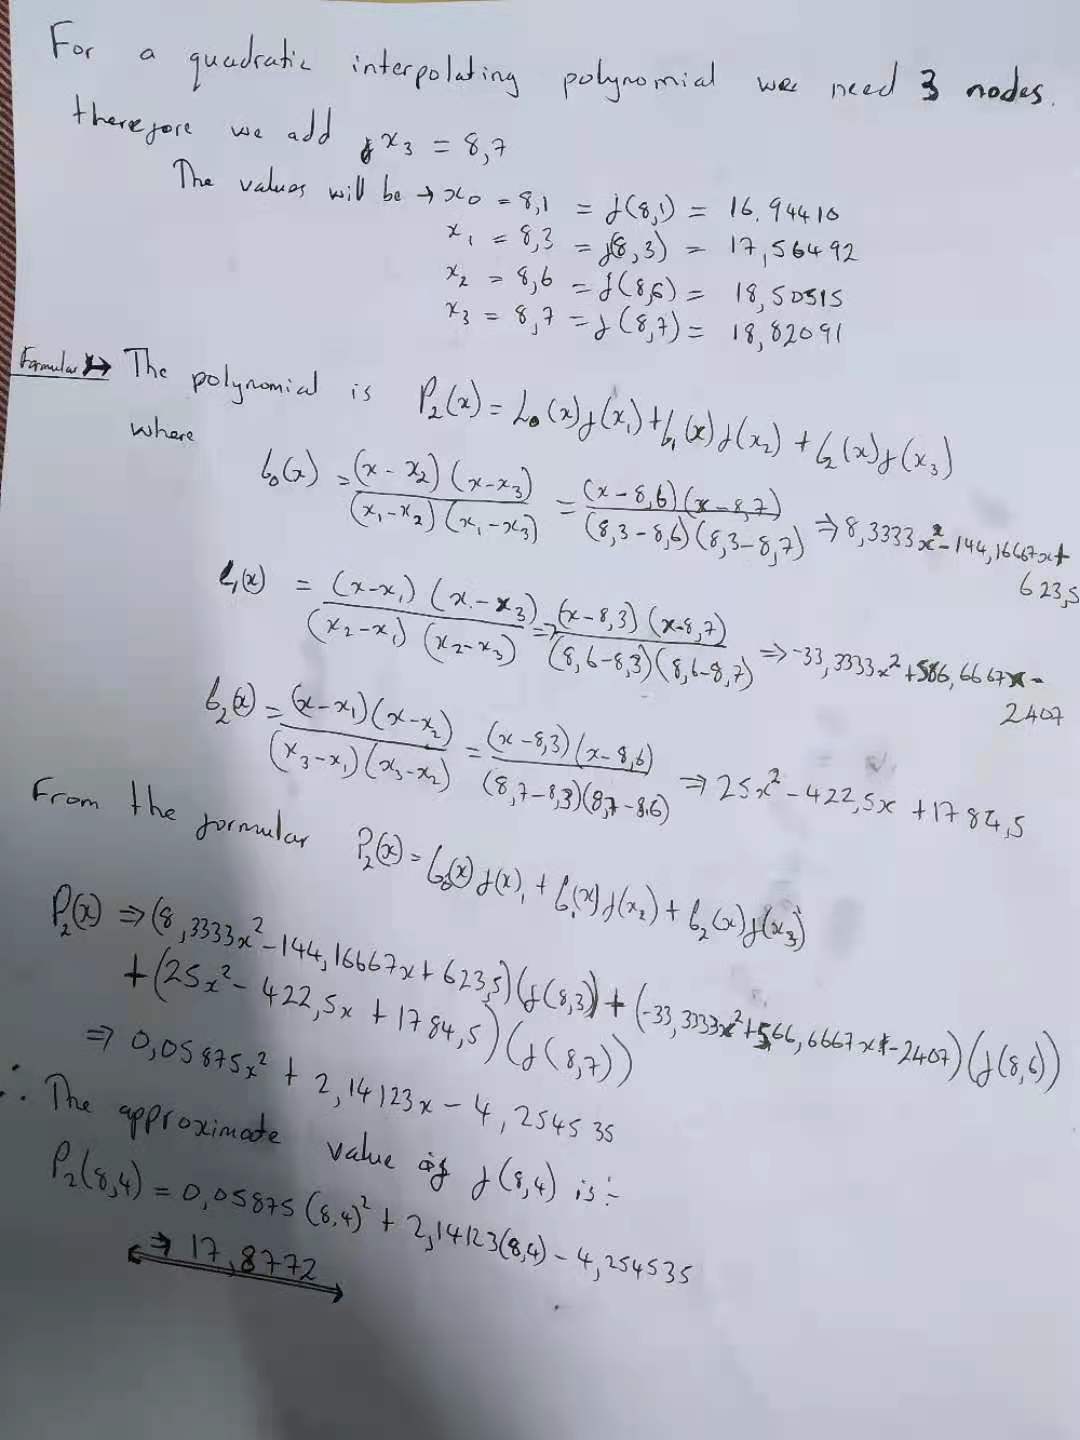 For a quadratic interpolating polynomial we need 3 nodes.
therefore we add x₃ = 8,7
The values will be → x₀ = 8,1 = f(8,1) = 16.94410
x₁ = 8,3 = f(8,3) = 17,56492
x₂ = 8,6 = f(8,6) = 18,50515
x₃ = 8,7 = f(8,7) = 18,82091
Formular ↦ The polynomial is P₂(x) = L₀(x)f(x₁) + L₁(x)f(x₂) + L₂(x)f(x₃)
where
L₀(x) = (x - x₂)(x - x₃) / (x₁ - x₂)(x₁ - x₃) = (x - 8,6)(x - 8,7) / (8,3 - 8,6)(8,3 - 8,7) ⇒ 8,3333x² - 144,16667x +
623,5
L₁(x) = (x - x₁)(x - x₃) / (x₂ - x₁)(x₂ - x₃) ⇒ (x - 8,3)(x - 8,7) / (8,6 - 8,3)(8,6 - 8,7) ⇒ -33,3333x² + 566,6667x -
2407
L₂(x) = (x - x₁)(x - x₂) / (x₃ - x₁)(x₃ - x₂) = (x - 8,3)(x - 8,6) / (8,7 - 8,3)(8,7 - 8,6) ⇒ 25x² - 422,5x + 1784,5
From the formular P₂(x) = L₀(x)f(x)₁ + L₁(x)f(x₂) + L₂(x)f(x₃)
P₂(x) ⇒ (8,3333x² - 144,16667x + 623,5)(f(8,3)) + (-33,3333x² + 566,6667x - 2407)(f(8,6))
+ (25x² - 422,5x + 1784,5)(f(8,7))
⇒ 0,05875x² + 2,14123x - 4,254535
∴ The approximate value of f(8,4) is :-
P₂(8,4) = 0,05875(8,4)² + 2,14123(8,4) - 4,254535
⇒ 17,8772